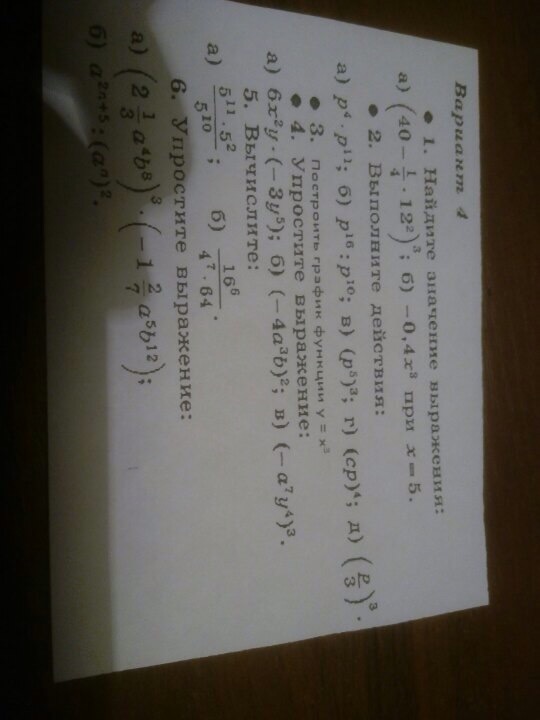 Вариант 4
• 1. Найдите значение выражения:
а) (40 − 1/4 · 12²)³; б) −0,4x³ при x = 5.
• 2. Выполните действия:
а) p⁴ · p¹¹; б) p¹⁶ : p¹⁰; в) (p⁵)³; г) (cp)⁴; д) (p/3)³.
• 3. Построить график функции y = x³
• 4. Упростите выражение:
а) 6x²y · (−3y⁵); б) (−4a³b)²; в) (−a⁷y⁴)³.
5. Вычислите:
а) 5¹¹ · 5² / 5¹⁰; б) 16⁶ / 4⁷ · 64.
6. Упростите выражение:
а) (2 1/3 a⁴b⁸)³ · (−1 2/7 a⁵b¹²);
б) a²ⁿ⁺⁵ : (aⁿ)².